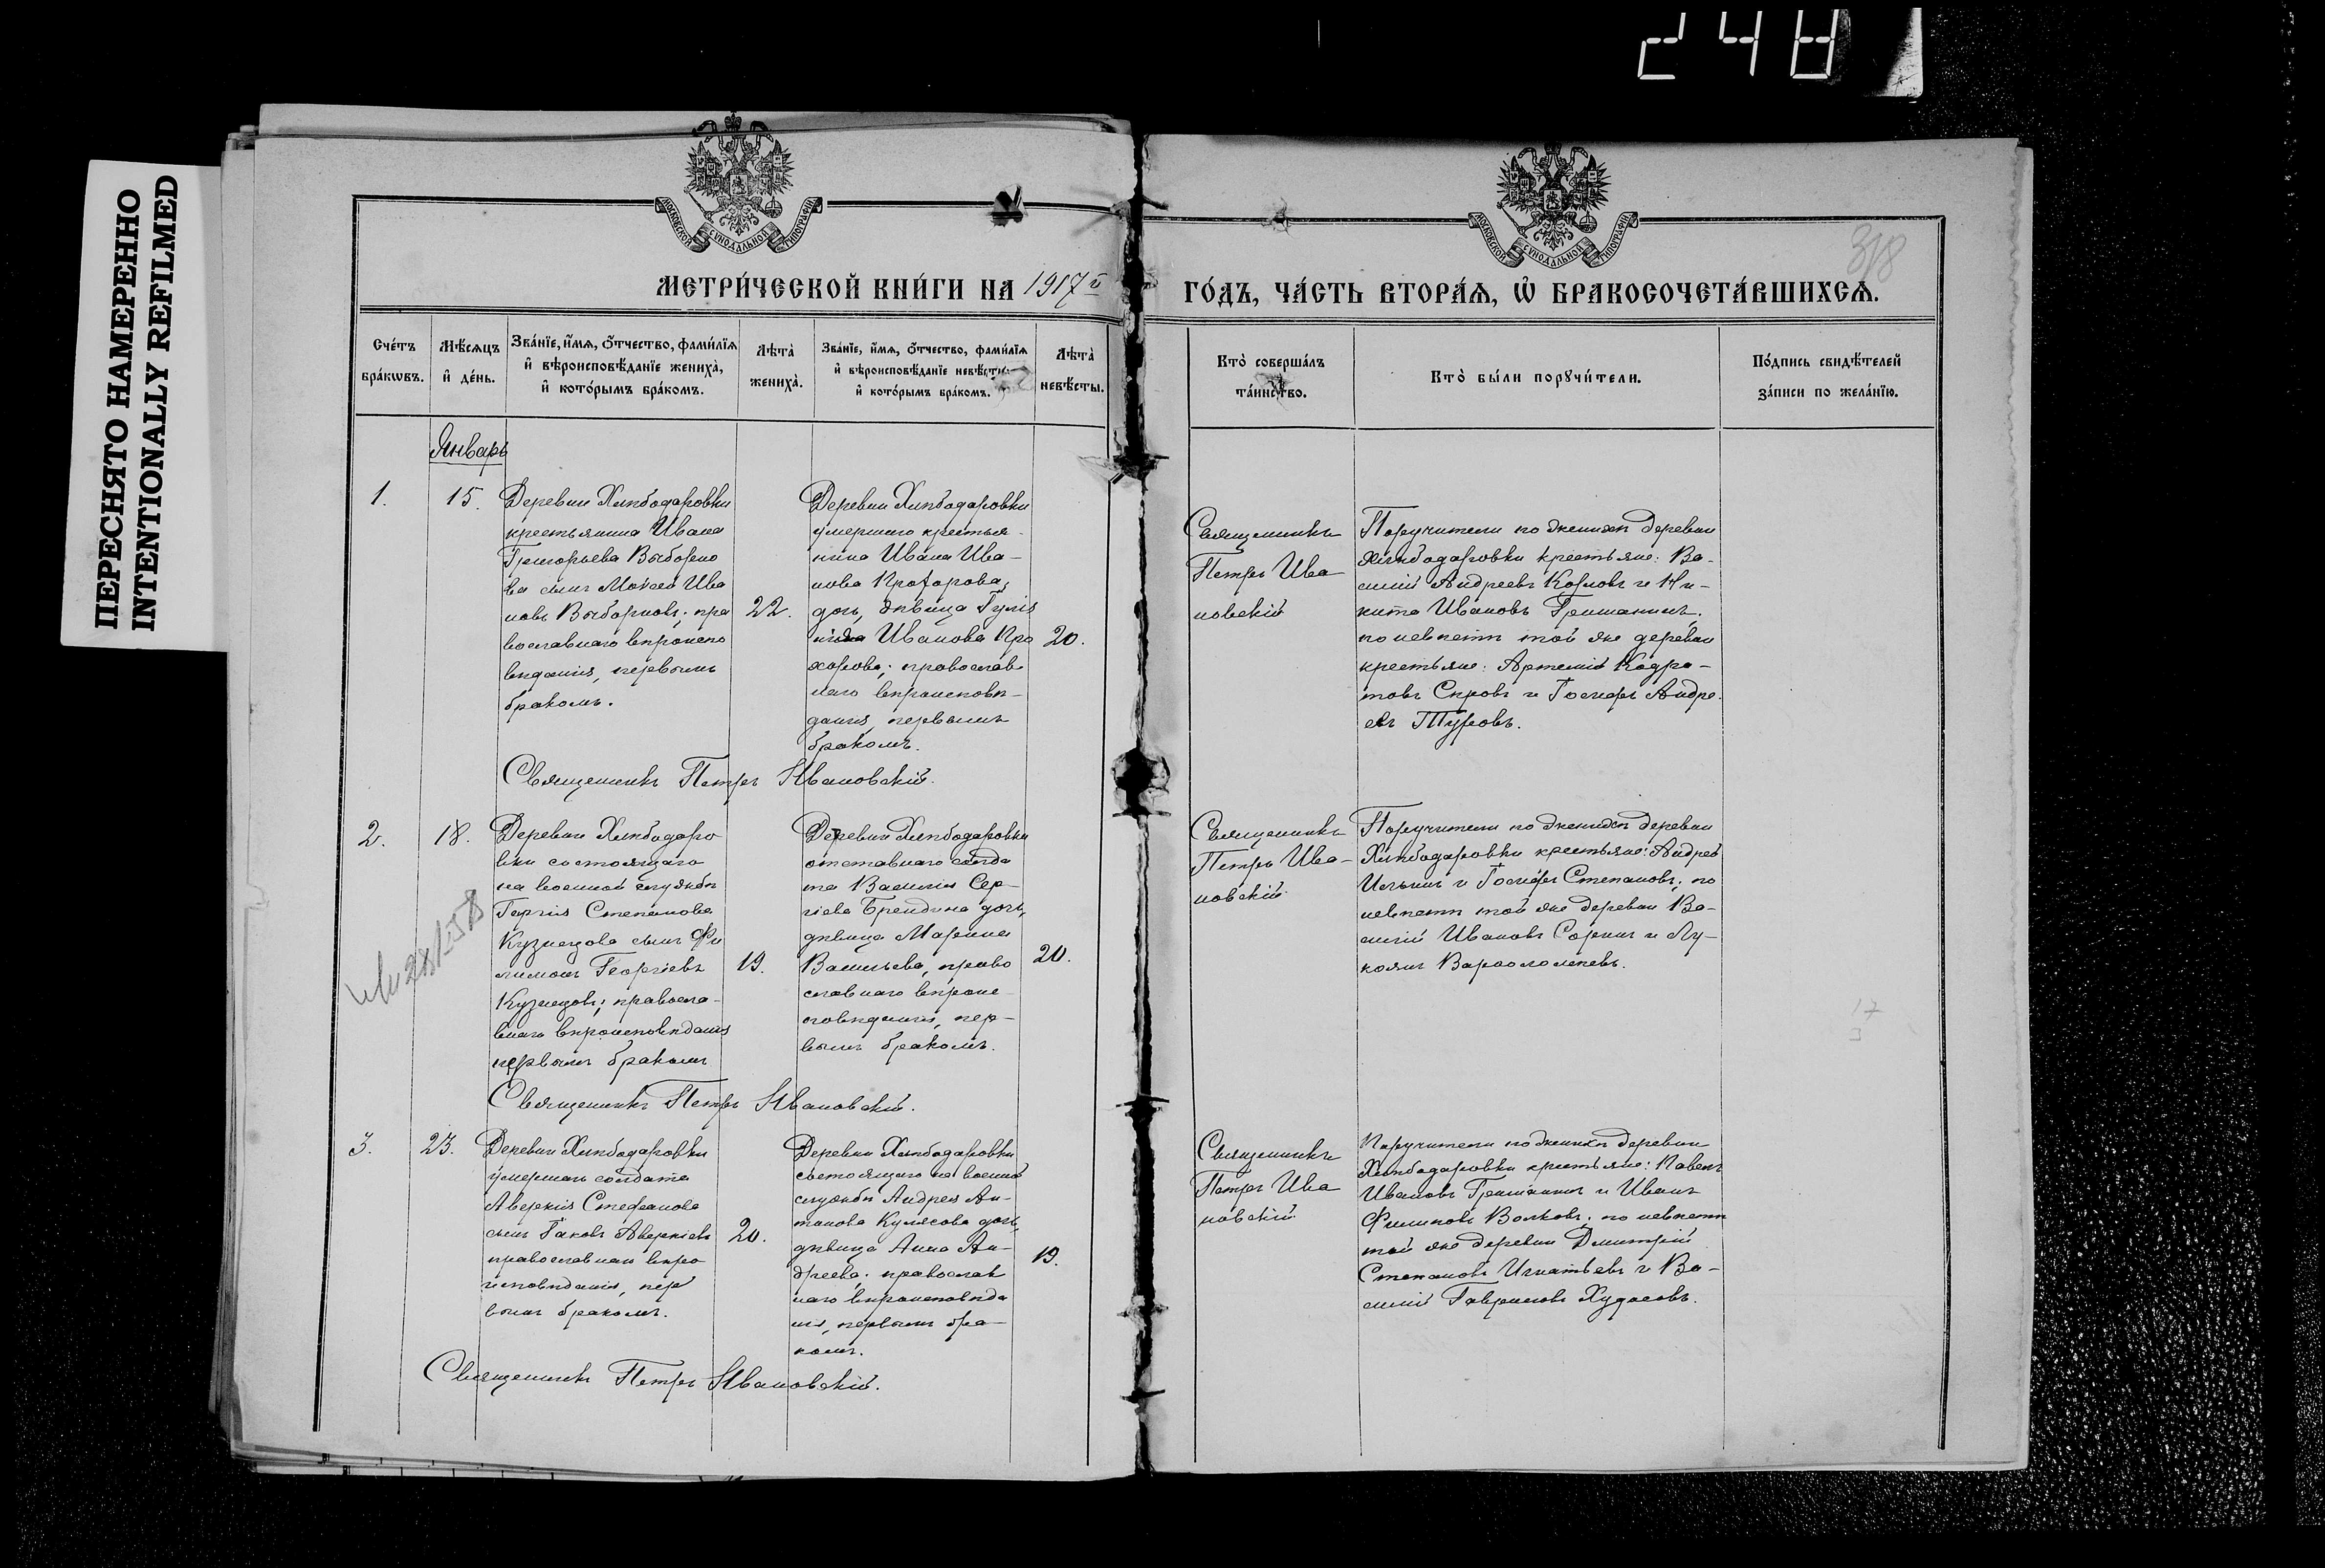 248
ПЕРЕСНЯТО НАМЕРЕННО
INTENTIONALLY REFILMED
МОСКОВСКОЙ СѴНОДАЛЬНОЙ ТИПОГРАФІИ
МОСКОВСКОЙ СѴНОДАЛЬНОЙ ТИПОГРАФІИ
318
МЕТРИ́ЧЕСКОЙ КНИ́ГИ НА 1917й
ГО́ДЪ, ЧА́СТЬ ВТОРА́Ѧ, Ѽ БРАКОСОЧЕТА́ВШИХСѦ.
Сче́тъ
бра́кωвъ.
Мѣ́сѧцъ
и҆ де́нь.
Зва́нїе, и҆́мѧ, ѻ҆́тчество, фами́лїѧ
и҆ вѣроисповѣ́данїе жениха̀,
и҆ кото́рымъ бра́комъ.
Лѣта̀
жениха̀.
Зва́нїе, и҆́мѧ, ѻ҆́тчество, фами́лїѧ
и҆ вѣроисповѣ́данїе невѣ́сты
и҆ кото́рымъ бра́комъ.
Лѣта̀
невѣ́сты.
Кто̀ соверша́лъ
та́инство.
Кто̀ бы́ли порꙋчи́тели.
По́дпись свидѣ́телей
за́писи по жела́нїю.
Январь
1.
15.
Деревни Хлѣбодаровки
крестьянина Ивана
Григорьева Выборно
ва сынъ Мокей Ива
новъ Выборновъ; пра
вославнаго вѣроиспо
вѣданія, первымъ
бракомъ.
22.
Деревни Хлѣбодаровки
умершаго крестья-
нина Ивана Ива-
нова Прохорова,
дочь, дѣвица Гули
Иванова Про
хорова; православ
наго вѣроисповѣ-
данія, первымъ
бракомъ.
20.
Священникъ
Петръ Ива
новскій
Поручители по женихѣ деревни
Хлѣбодаровки крестьяне: Ва-
силій Андреевъ Козловъ и Ни-
кита Ивановъ Гришанинъ;
по невѣстѣ той же деревни
крестьяне: Артемій Кодра-
товъ Скровъ и Іосифъ Андре-
евъ Туровъ.
Священникъ Петръ Ивановскій.
2.
18.
Деревни Хлѣбодаро
вки состоящаго
на военной службѣ
Георгія Степанова
Кузнецова сынъ Фи
лимонъ Георгіевъ
Кузнецовъ; правосла-
внаго вѣроисповѣданія
первымъ бракомъ
19.
Деревни Хлѣбодаровки
отставнаго солда
та Василія Сер-
гіева Брендина дочь,
дѣвица Марина
Васильева, право
славнаго вѣроис-
повѣданія, пер-
вымъ бракомъ.
20.
Священникъ
Петръ Ива-
новскій
Поручители по женихѣ деревни
Хлѣбодаровки крестьяне: Андрей
Ильинъ и Іосифъ Степановъ; по
невѣстѣ той же деревни Ва-
силій Ивановъ Соринъ и Лу-
кьянъ Варѳоломеевъ.
Священникъ Петръ Ивановскій.
3.
23.
Деревни Хлѣбодаровки
умершаго солдата
Аверкія Стефанова
сынъ Іаковъ Аверкіевъ
православнаго вѣро
исповѣданія, пер
вымъ бракомъ.
20.
Деревни Хлѣбодаровки
состоящаго на военной
службѣ Андрея Ан-
тонова Кулясова дочь,
дѣвица Анна Ан-
дреева; православ
наго вѣроисповѣда
нія, первымъ бра-
комъ.
19.
Священникъ
Петръ Ива
новскій
Поручители по женихѣ деревни
Хлѣбодаровки крестьяне: Павелъ
Ивановъ Гришанинъ и Иванъ
Филиповъ Волковъ; по невѣстѣ
той же деревни Дмитрій
Степановъ Игнатьевъ и Ва-
силій Гавриловъ Худасовъ.
Священникъ Петръ Ивановскій.
17